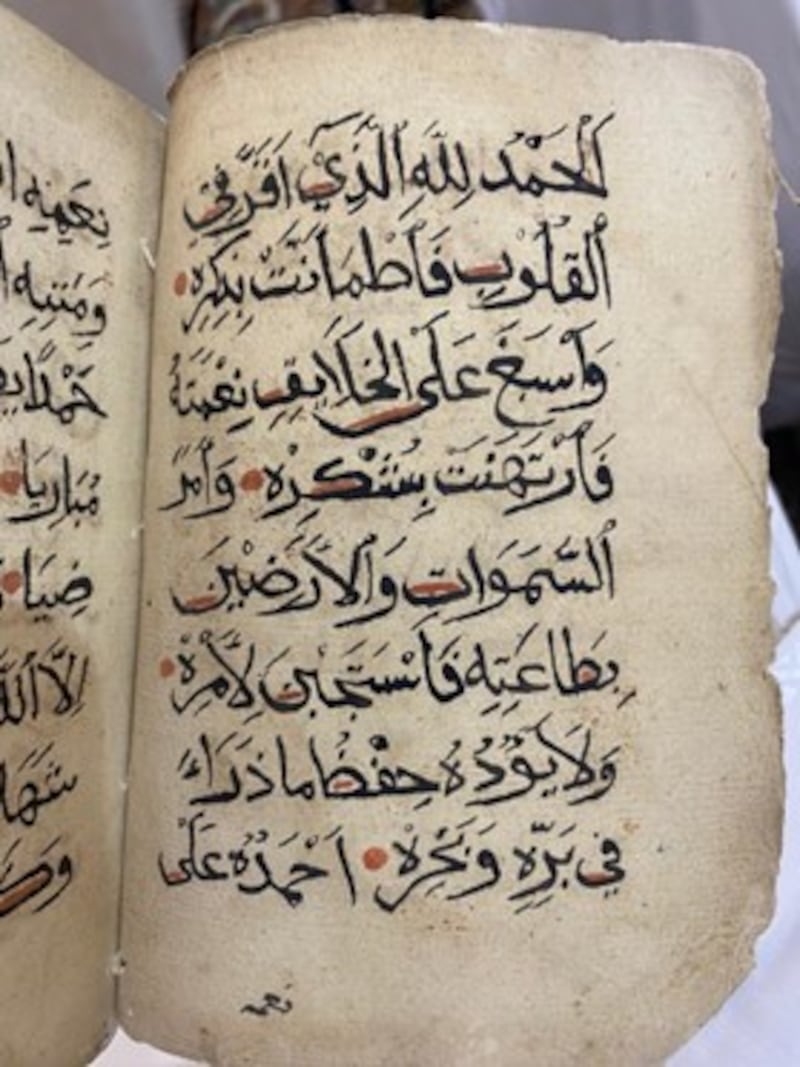 اَلْحَمْدُ لِلّٰهِ الَّذِي اَقَرَّ فِي
اَلْقُلُوبِ فَاطْمَانَّتْ بِذِكْرِهِ
وَاَسْبَغَ عَلَى الْخَلَايِقِ نِعْمَتَهُ
فَارْتَهَنَتْ بِشُكْرِهِ وَاَمَرَ
السَّمَوَاتِ وَالْاَرَضِينَ
بِطَاعَتِهِ فَاسْتَجَبْنَ لِاَمْرِهِ
وَلَا يَؤُدُهُ حِفْظُ مَا ذَرَاءَ
فِي بَرِّهِ وَبَحْرِهِ اَحْمَدُهُ عَلَى
نعمه
نِعَمِهِ
وَمَنِّهِ
حَمْدًا
مُبَارِيًا
ضِيَا
اِلَّا اللّٰهُ